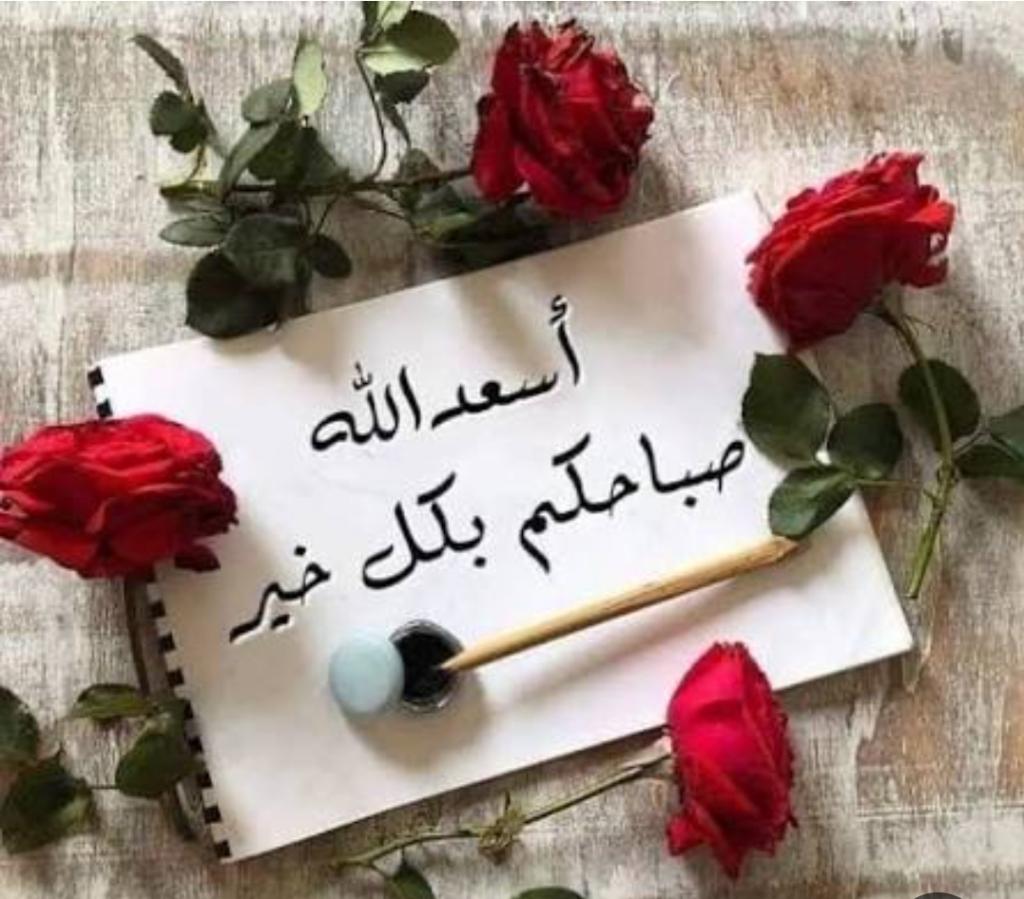 أسعد الله
صباحكم بكل خير